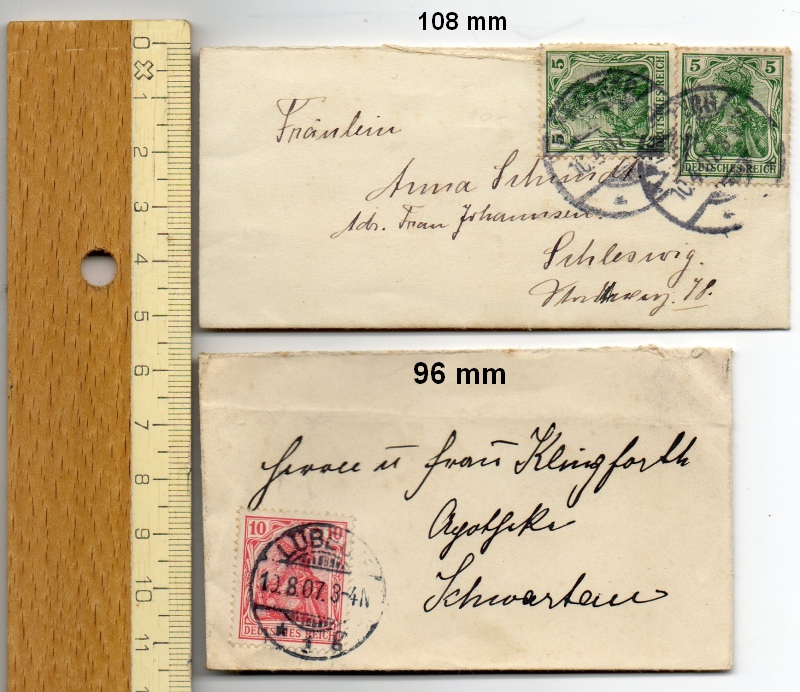 108 mm
0
1
2
3
4
5
6
7
8
9
10
11
5
DEUTSCHES REICH
5 5
DEUTSCHES REICH
Fräulein
Anna Schmidt
Adr. Frau Johannsen.
Schleswig.
78.
96 mm
Herrn u Frau Klingforth
Apotheke
Schwartau
10 10
DEUTSCHES REICH
LÜBECK
8.07.3-4N
* 1 g